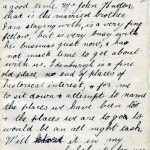 a good time Mr John Hudson
that is the married brother
I am staying with, is a very fine
fellow, but is very busy with
his business just now, & has
not much time to get about
with us. Edinburgh is a fine
old place no end of places of
historical interest, & for me
to sit down & attempt to name
the places we have been to
& the places we are to go to
would be an all night task
Will it in my